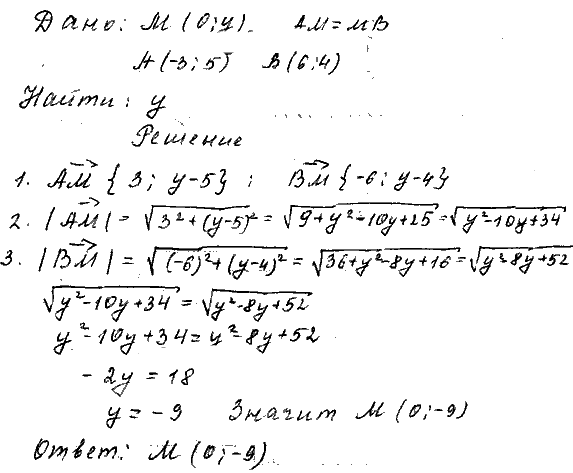 Дано: М (0; y). AM = MB
A (-3; 5) B (6; 4)
Найти: y
Решение
1. AM→ {3; y-5}; BM→ {-6; y-4}
2. |AM→| = √(3²+(y-5)²) = √(9+y²-10y+25) = √(y²-10y+34)
3. |BM→| = √((-6)²+(y-4)²) = √(36+y²-8y+16) = √(y²-8y+52)
√(y²-10y+34) = √(y²-8y+52)
y²-10y+34 = y²-8y+52
-2y = 18
y = -9 Значит М (0; -9)
Ответ: М (0; -9)